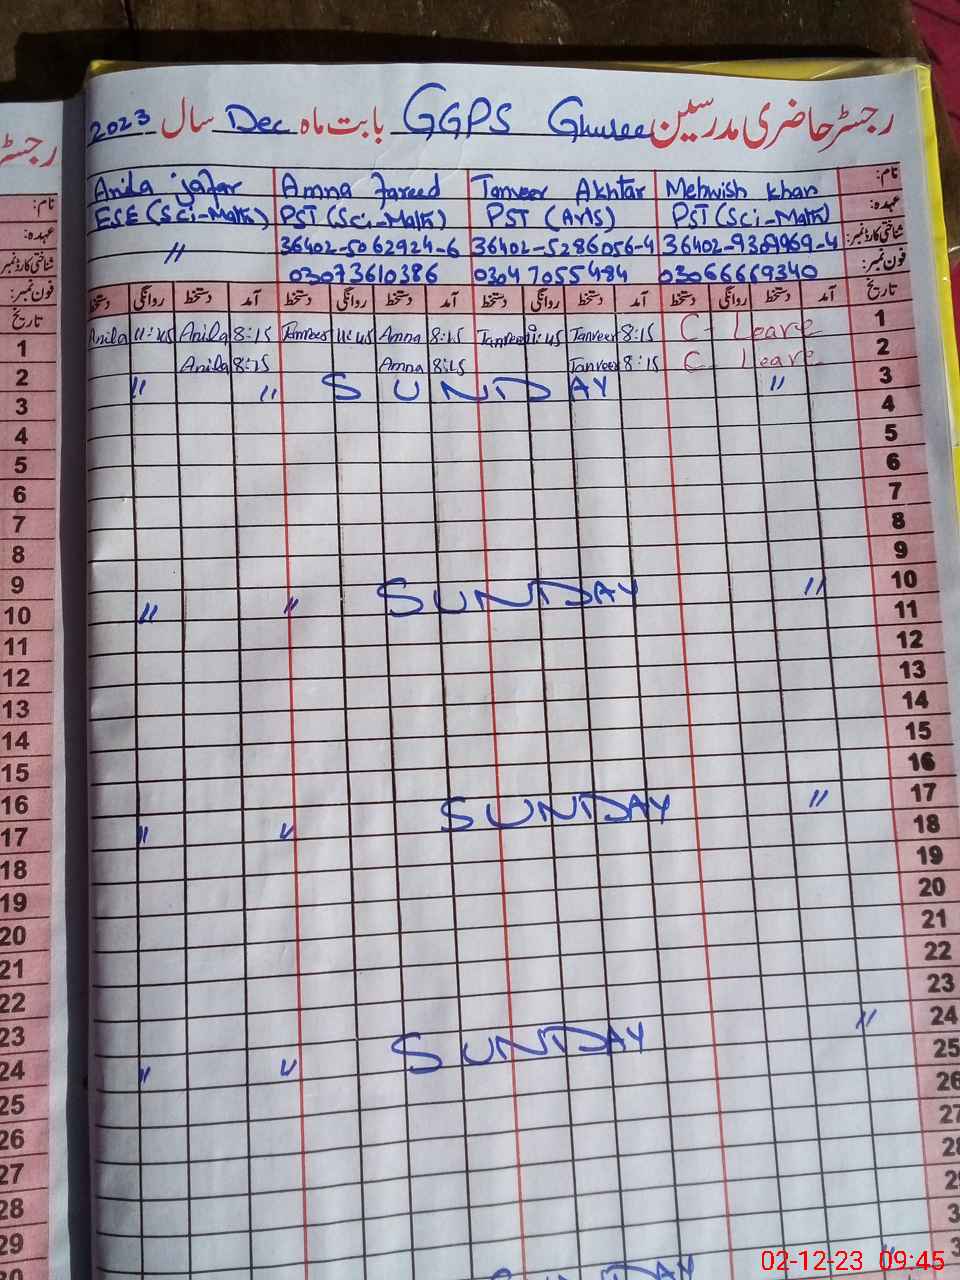 رجسٹر حاضری مدرسین GGPS Ghusee بابت ماہ Dec سال 2023
نام: Mehwish Khan Tanveer Akhtar Amna Fareed Anila Jafar
عہدہ: PST (Sci-Math) PST (Arts) PST (Sci-Math) ESE (Sci-Math)
شناختی کارڈ نمبر: 36402-9309969-4 36402-5286056-4 36402-5062924-6 "
فون نمبر: 03066669340 03047055484 03073610386
تاریخ آمد دستخط روانگی دستخط آمد دستخط روانگی دستخط آمد دستخط روانگی دستخط آمد دستخط روانگی دستخط
1 C- Leave 8:15 Tanveer 11:45 Tanveer 8:15 Amna 11:45 Tanveer 8:15 Anila 11:45 Anila
2 C- Leave 8:15 Tanveer 8:15 Amna 8:15 Anila
3 " SUNDAY " "
4
5
6
7
8
9
10 " SUNDAY " "
11
12
13
14
15
16
17 " SUNDAY " "
18
19
20
21
22
23
24 " SUNDAY " "
25
26
27
رجسٹر
نام:
عہدہ:
شناختی کارڈ نمبر
فون نمبر:
تاریخ
1
2
3
4
5
6
7
8
9
10
11
12
13
14
15
16
17
18
19
20
21
22
23
24
25
26
27
28
29
30
SUNDAY
02-12-23 09:45